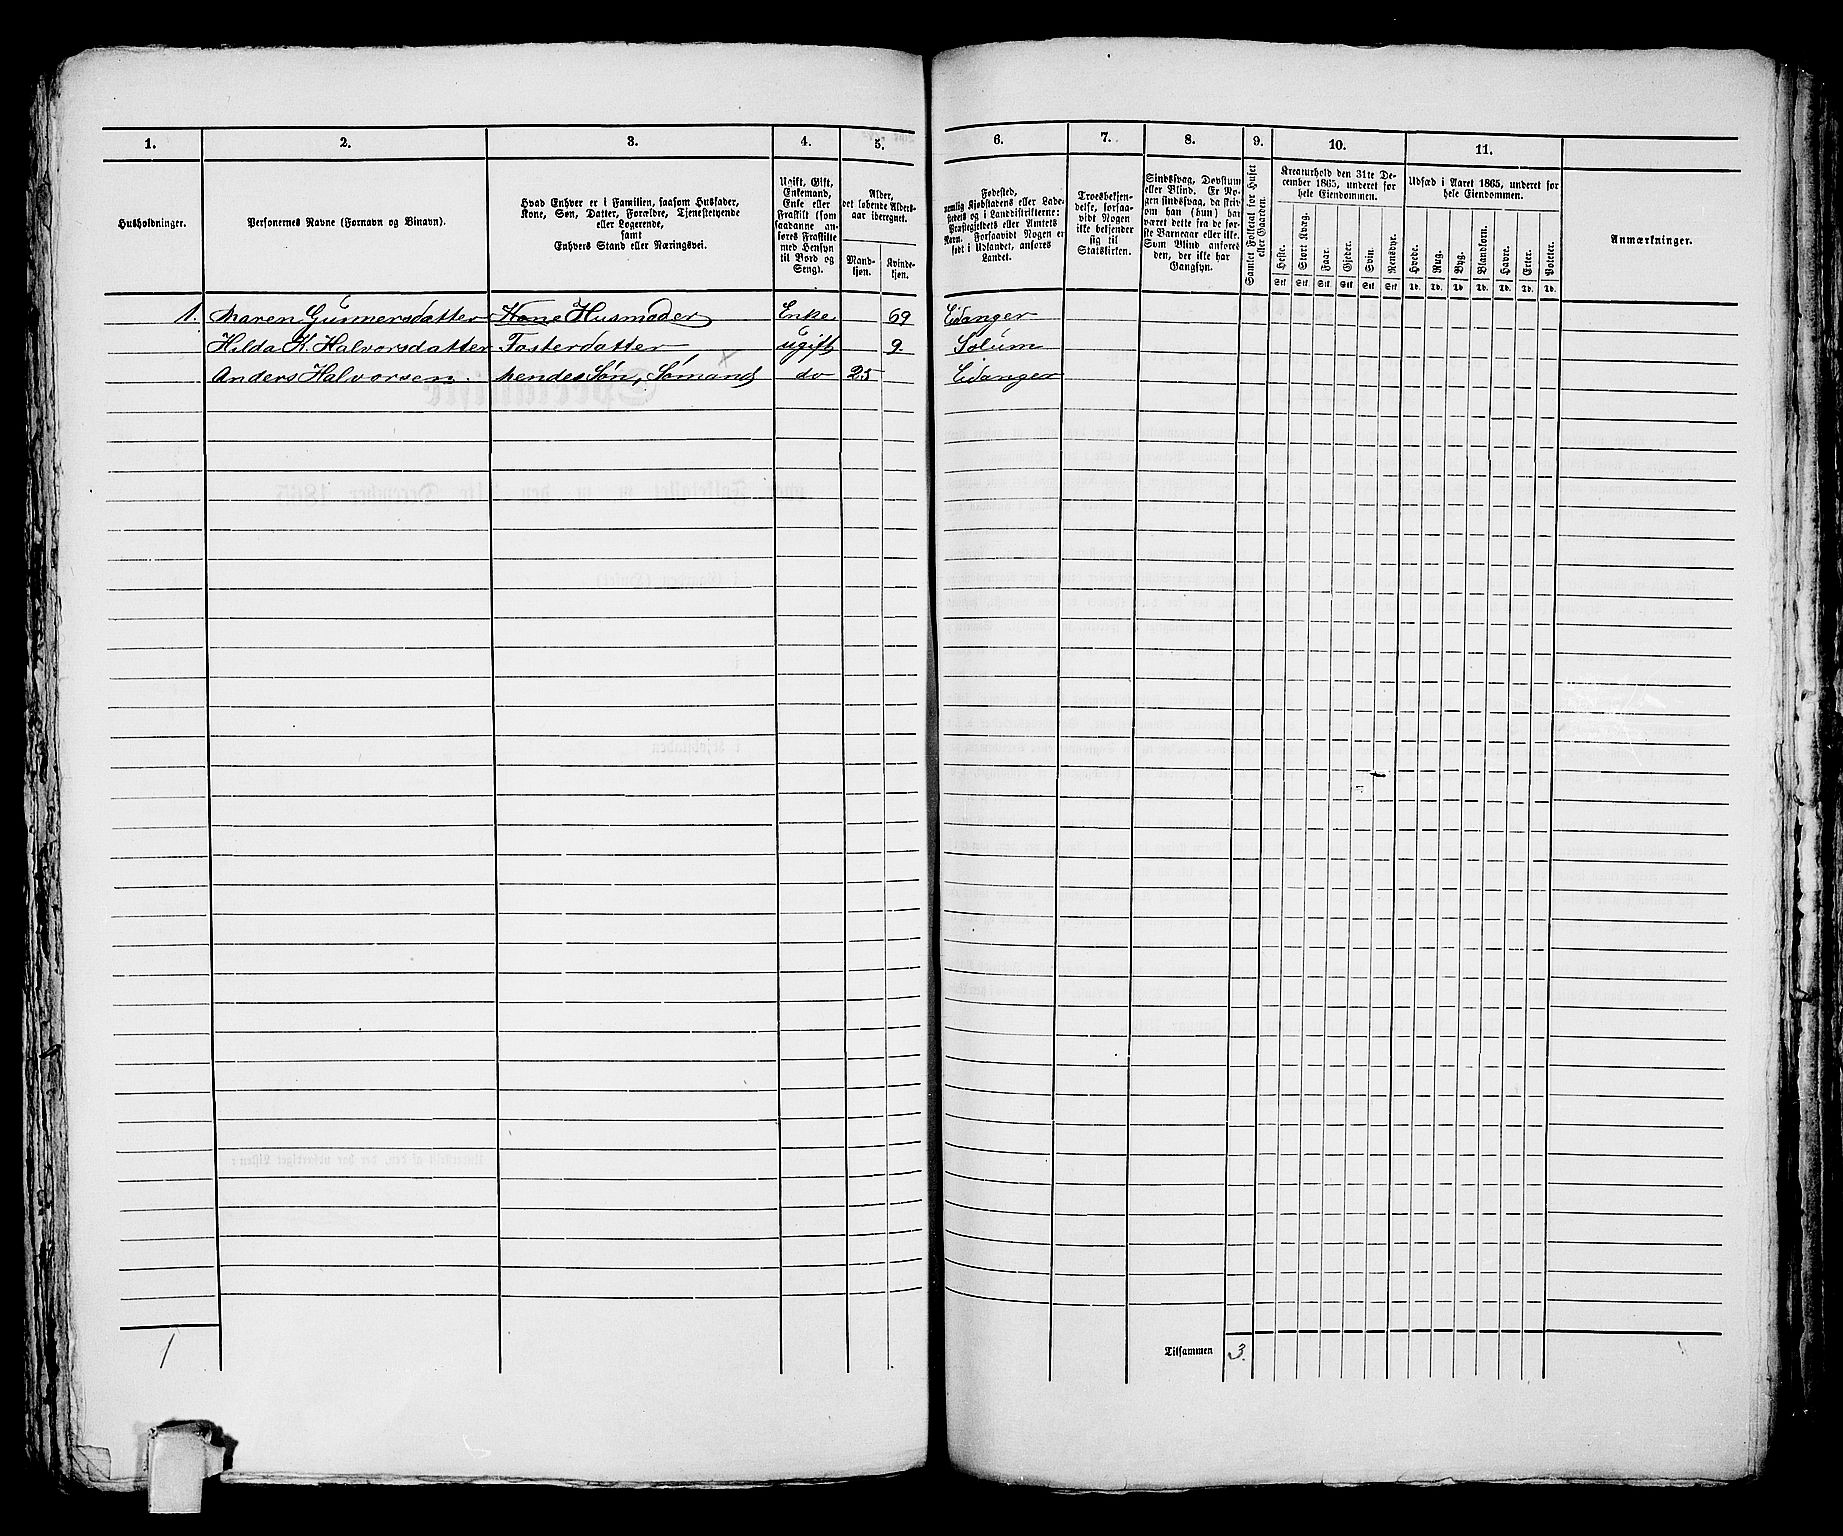 1. 2. 3. 4. 5. 6. 7. 8. 9. 10. 11.
Husholdninger.
Personernes Navne (Fornavn og Binavn).
Hvad Enhver er i Familien, saasom Husfader,
Kone, Søn, Datter, Forældre, Tjenestetyende
eller Logerende,
samt
Enhvers Stand eller Næringsvei.
Ugift, Gift,
Enkemand,
Enke eller
Fraskilt (som
saadanne an-
føres Fraskilte
med Hensyn
til Bord og
Seng).
Alder,
det løbende Alders-
aar iberegnet.
Mand-
kjøn.
Kvinde-
kjøn.
Fødested,
nemlig Kjøbstadens eller Lade-
stedets og i Landdistrikterne:
Præstegjeldets eller Amtets
Navn. Forsaavidt Nogen er
født i Udlandet, anføres
Landet.
Troesbekjen-
delse, forsaa-
vidt Nogen
ikke bekjender
sig til
Statskirken.
Sindssvag, Døvstum
eller Blind. Er No-
gen sindssvag, da skri-
ves om han (hun) har
været dette fra de før-
ste Barneaar eller ikke.
Som Blind anføres
den, der ikke har
Gangsyn.
Samlet Folketal for Huset
eller Gaarden.
Kreaturhold den 31te De-
cember 1865, underet for
hele Eiendommen.
Heste. Stort Kvæg. Faar. Gjeder. Svin. Rensdyr.
Stk Stk Stk Stk Stk Stk
Udsæd i Aaret 1865, underet for
hele Eiendommen.
Hvede. Rug. Byg. Blandkorn. Havre. Erter. Poteter.
Td. Td. Td. Td. Td. Td. Td.
Anmærkninger.
1. Maren Gunnersdatter Kone Husmoder Enke 69 Eidanger
Hilda K. Halvorsdatter Fosterdatter ugift 9. Solum
Anders Halvorsen. Hendes Søn, Sømand do 25 Eidanger
1
Tilsammen 3.